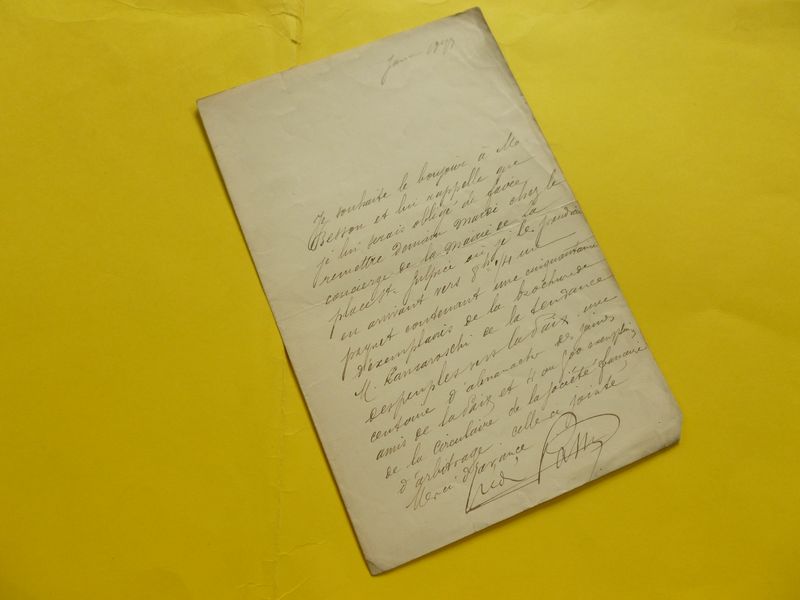 Je souhaite le bonjour à Mr
Besson et lui rappelle que
je lui serais obligé de faire
remettre demain mardi chez le
concierge de la Mairie de la
place St. Sulpice où je le prendrai
en arrivant vers 8h 1/4 un
paquet contenant une cinquantaine
d'exemplaires de la brochure de
M. de la tendance
des peuples vers la Paix une
centaine d'almanachs des jeunes
amis de la Paix et 4 ou 500 exempl.
de la circulaire de la société française
d'arbitrage celle ci jointe
Merci d'avance
Fréd Passy